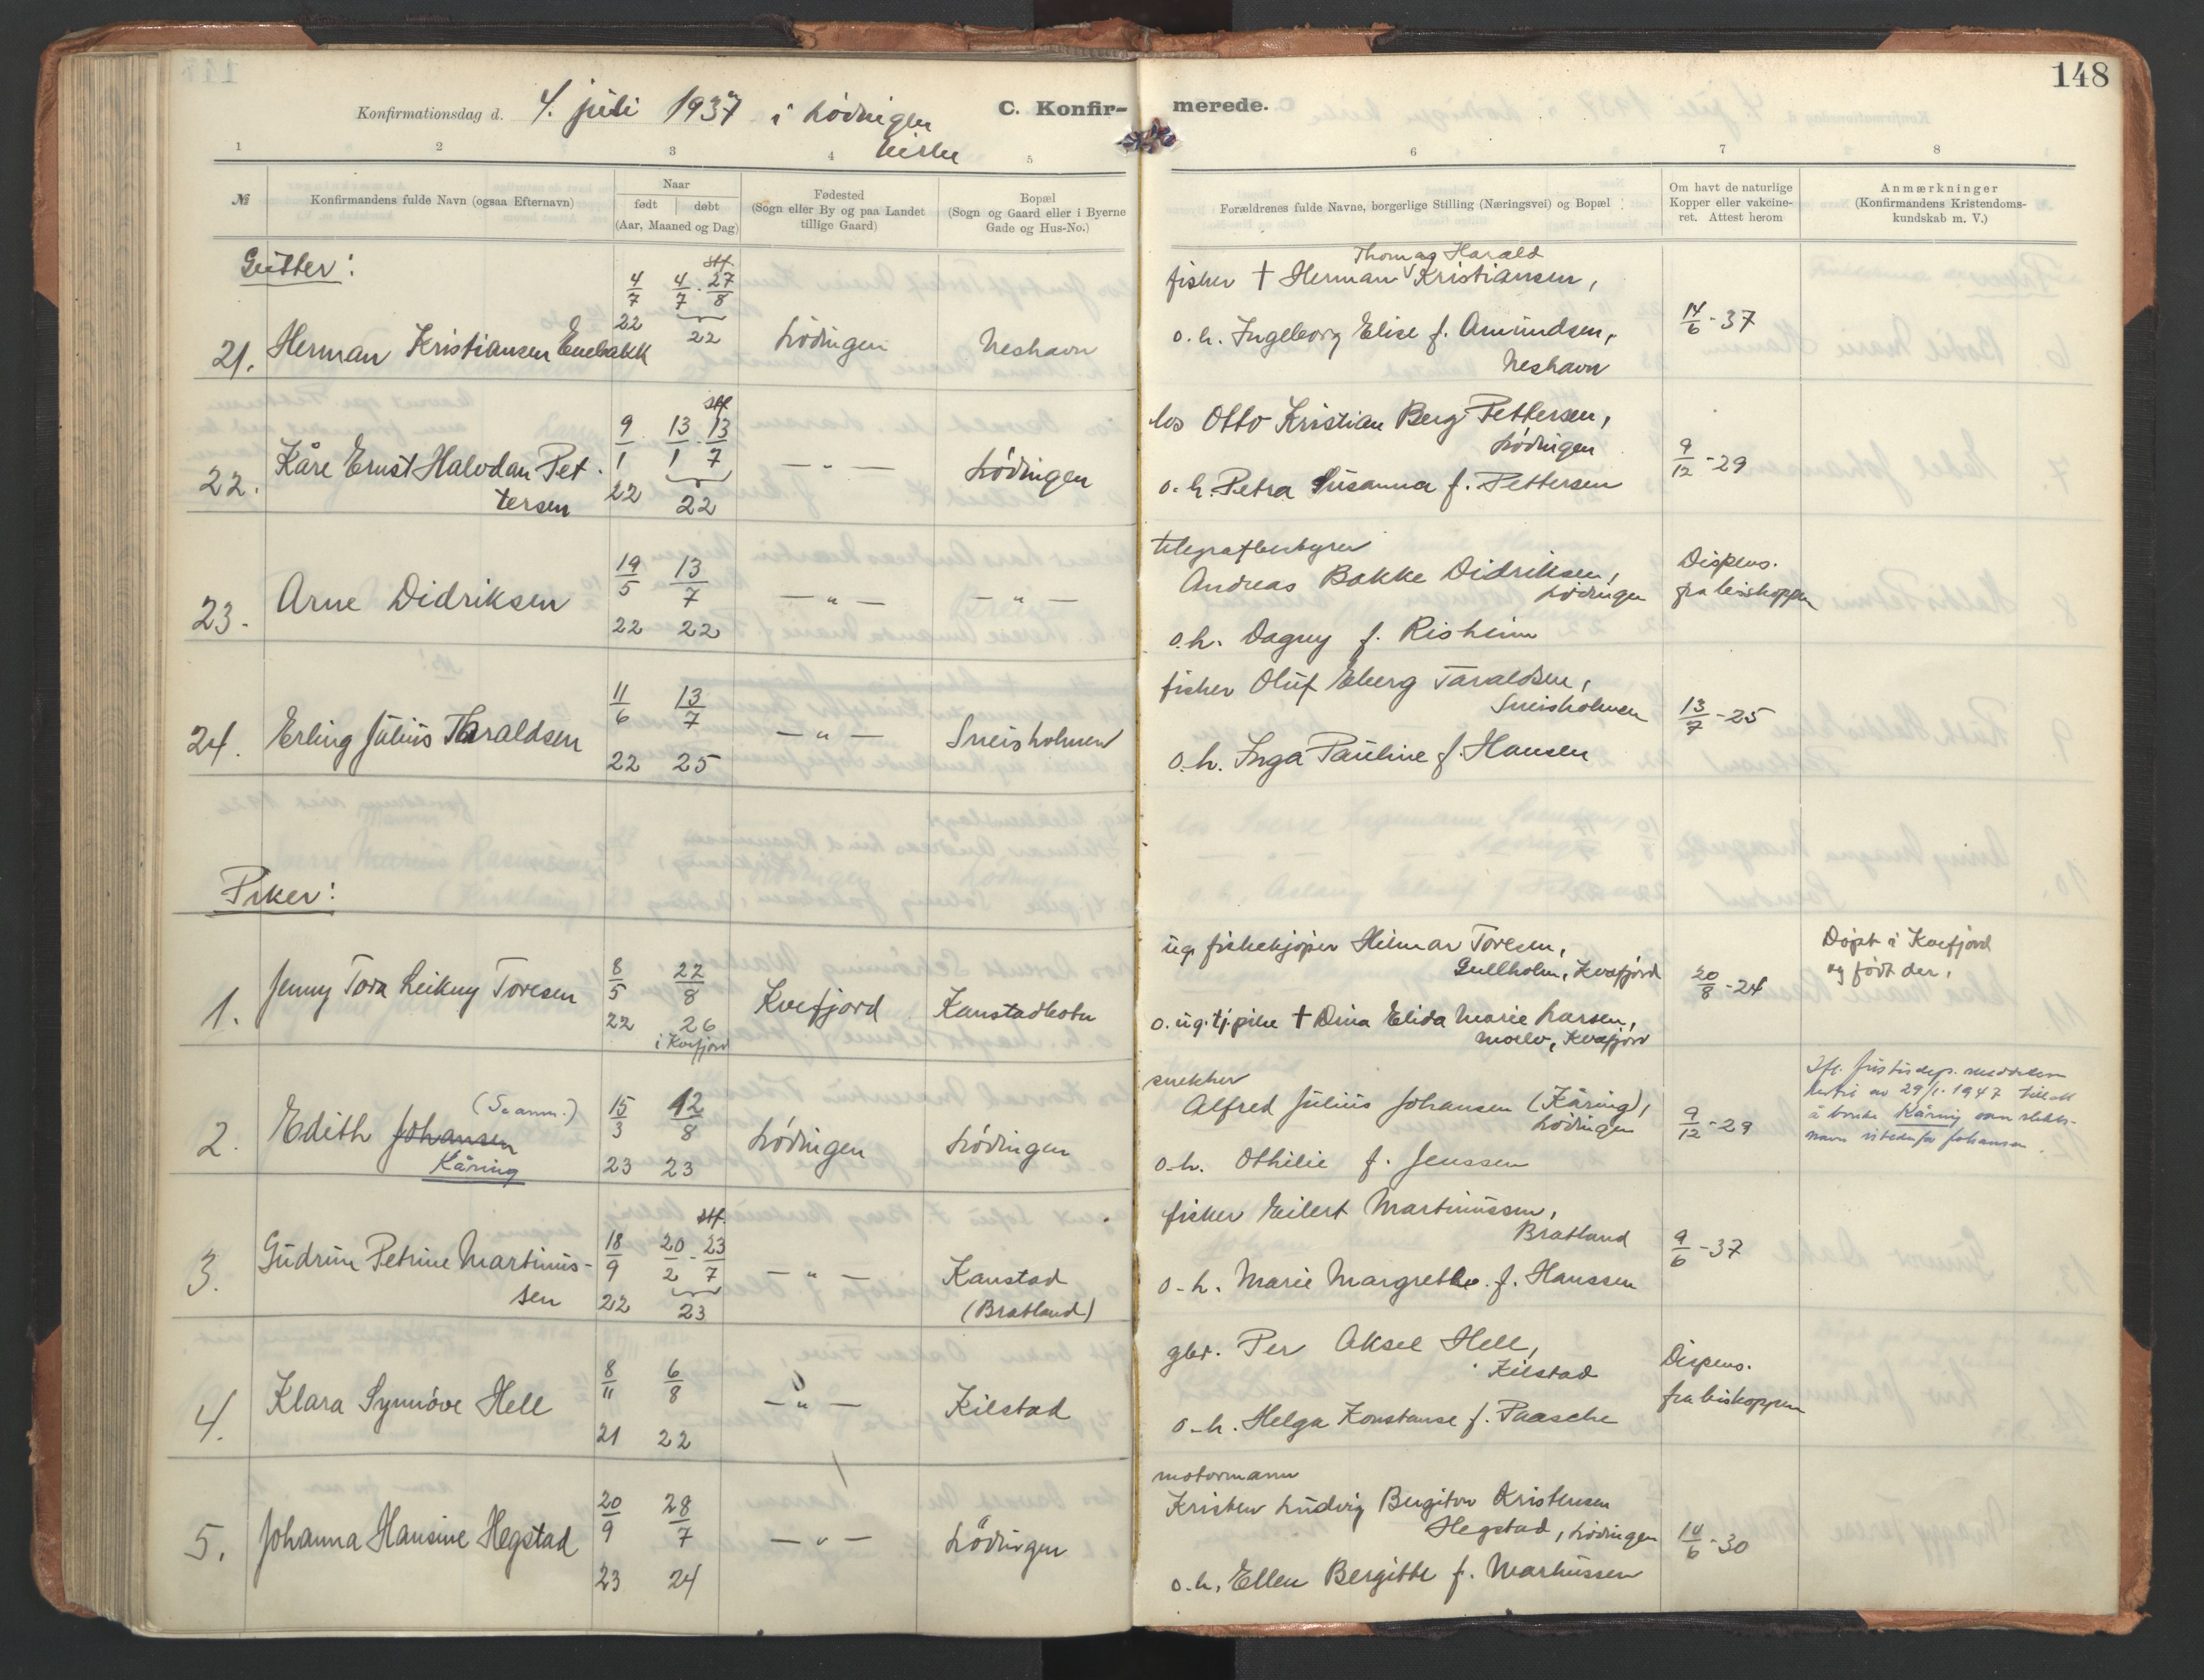 148
Konfirmationsdag d. 4. juli 1937 i Lödingen
kirke
C. Konfir-
merede.
1 2 3 4 5 6 7 8
№
Konfirmandens fulde Navn (ogsaa Efternavn)
Naar
født | døbt
(Aar, Maaned og Dag)
Fødested
(Sogn eller By og paa Landet
tillige Gaard)
Bopæl
(Sogn og Gaard eller i Byerne
Gade og Hus-No.)
Forældrenes fulde Navne, borgerlige Stilling (Næringsvei) og Bopæl
Om havt de naturlige
Kopper eller vakcine-
ret. Attest herom
Anmærkninger
(Konfirmandens Kristendoms-
kundskab m. V.)
Gutter:
21. Herman Kristiansen Enebakk
4/7 22
4/7 - stf. 27/8 22
Lödingen
Neshavn
Thomas Harald
fisker † Herman Kristiansen,
o. h. Ingeborg Elise f. Amundsen,
Neshavn
14/6 - 37
22. Kåre Ernst Halvdan Pet-
tersen
9/1 22
13/1 - stf. 13/7 22
— " —
Lödingen
los Otto Kristian Berg Pettersen,
Lödingen
o. h. Petra Susanna f. Pettersen
9/12 - 29
23. Arne Didriksen
19/5 22
13/7 22
— " —
— " —
telegrafbestyrer
Andreas Bakke Didriksen,
Lödingen
o. h. Dagny f. Risheim
Dispens.
fra biskoppen
24. Erling Julius Taraldsen
11/6 22
13/7 25
— " —
Sneisholmen
fisker Oluf Eberg Taraldsen,
Sneisholmen
o. h. Inga Pauline f. Hansen
13/7 - 25
Piker:
1. Jenny Tora Leikny Toresen
8/5 22
22/8 26
i Kvefjord
Kvefjord
Kanstadbotn
ug. fiskekjøper Hilmar Toresen,
Gullholm, Kvæfjord
o. ug. tj. pike † Dina Elida Marie Larsen,
Moelv, Kvæfjord
20/8 - 24
Døpt i Kvefjord
og født der.
2. Edith Johansen (Se anm.)
Käring
15/3 23
12/8 23
Lödingen
Lödingen
snekker
Alfred Julius Johansen (Käring),
Lödingen
o. h. Othilie f. Jenssen
9/12 - 29
Ifl. Justisdep. meddelelse
av 29/1. 1947 tillatt
å bruke Käring som slekts-
navn istedenfor Johansen.
3. Gudrun Petrine Martinus-
sen
18/9 22
20/2 - stf. 23/7 23
— " —
Kanstad
(Bratland)
fisker Eilert Martinussen,
Bratland
o. h. Marie Margrethe f. Hanssen
9/6 - 37
4. Klara Synnöve Hell
8/11 21
6/8 22
— " —
Kilstad
gbr. Per Aksel Hell,
Kilstad
o. h. Helga Konstanse f. Paasche
Dispens.
fra biskoppen
5. Johanna Hansine Hegstad
20/9 23
28/7 24
— " —
Lödingen
motormann
Kristen Ludvig Bergiton Kristensen
Hegstad, Lödingen
o. h. Ellen Bergitte f. Markussen
14/6 - 30